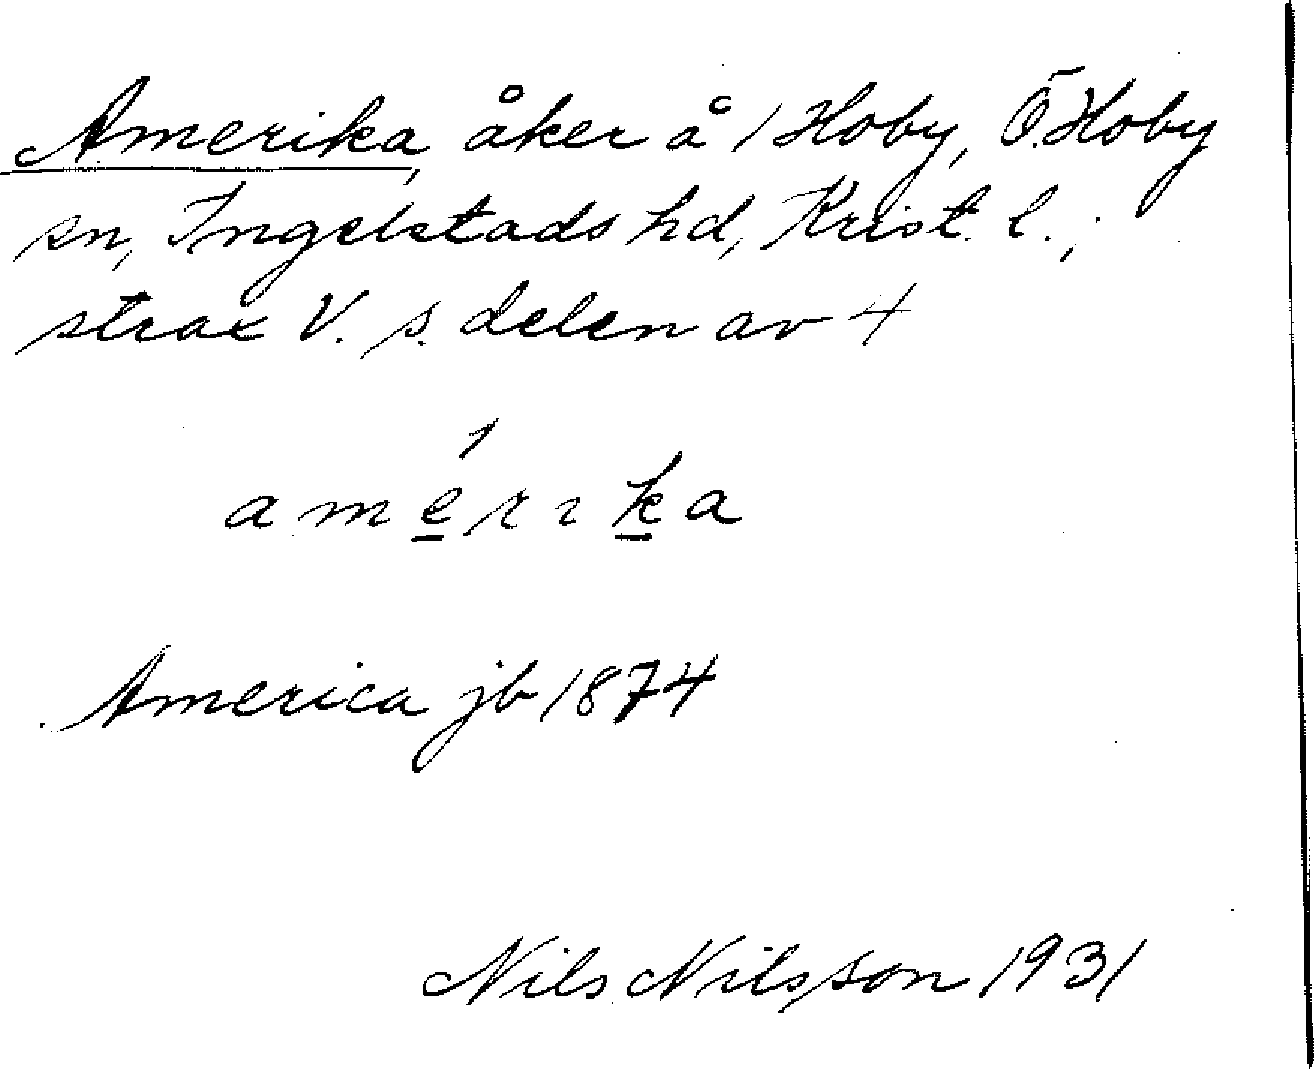 Amerika, åker å 1 Hoby, Ö. Hoby
sn, Ingelstads hd, Krist. l.;
strax V. s. delen av 4
amérıka
America jb 1874
Nils Nilsson 1931